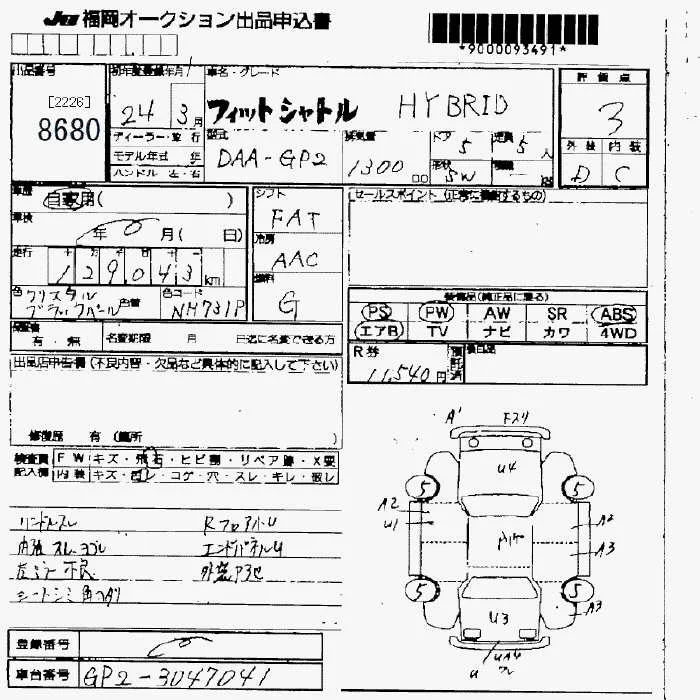 JU 福岡オークション出品申込書
*9000093491*
出品番号 初年度登録年月 車名・グレード 評価点
[2226]
8680
24 3月 フィットシャトル HYBRID 3
ディーラー・並行 型式 排気量 ドア 5 定員 5人 外装 内装
モデル年式 年 DAA-GP2 1300 CC 形状 SW 積載 KG D C
ハンドル 左・右
車歴 自家用( ) シフト FAT セールスポイント(正常に稼動するもの)
車検 年 月( 日)
走行 十 万 千 百 十 一 冷房 AAC
129043 km
色 クリスタルブラックパール 色替 色コード NH731P 燃料 G
装備品(純正品に限る)
PS PW AW SR ABS
エアB TV ナビ カワ 4WD
保証書 有・無 名変期限 月 日迄に名変できる方
R券 11,540円 預託済 後日品
出品店申告欄(不良内容・欠品など具体的に記入して下さい)
修復歴 有(箇所 )
検査員記入欄 FW キズ・飛石・ヒビ割・リペア跡・X要
内装 キズ・汚レ・コゲ・穴・スレ・キレ・破レ
ハンドルスレ RフロアハーU
内張スレ・ヨゴレ エンドパネルU
左ミラー不良
シートシミ
A' Fスリ
U4
5 5
A2 A2
U1
A3
5 5
A3
U3
U UA4
登録番号
車台番号 GP2-3047041